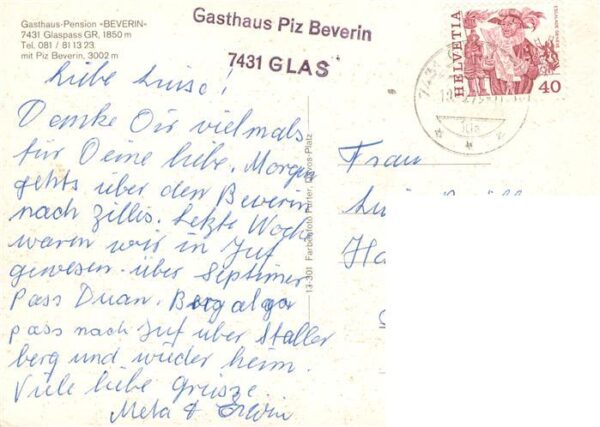 Gasthaus-Pension «BEVERIN»
7431 Glaspass GR, 1850 m
Tel. 081 / 81 13 23
mit Piz Beverin, 3002 m
Gasthaus Piz Beverin
7431 GLAS
HELVETIA
40
Liebe Luise!
Danke Dir vielmals
für Deine liebe. Morgen
gehts über den Beverin
nach Zillis. Letzte Woche
waren wir in Juf
gewesen. über Septimer
Pass Duan. Bergalga
pass nach Juf über Staller
berg und wieder heim.
Viele liebe Grüsse
Meta & Erwin
13-301 Farbenfoto Furter, Davos-Platz
Frau